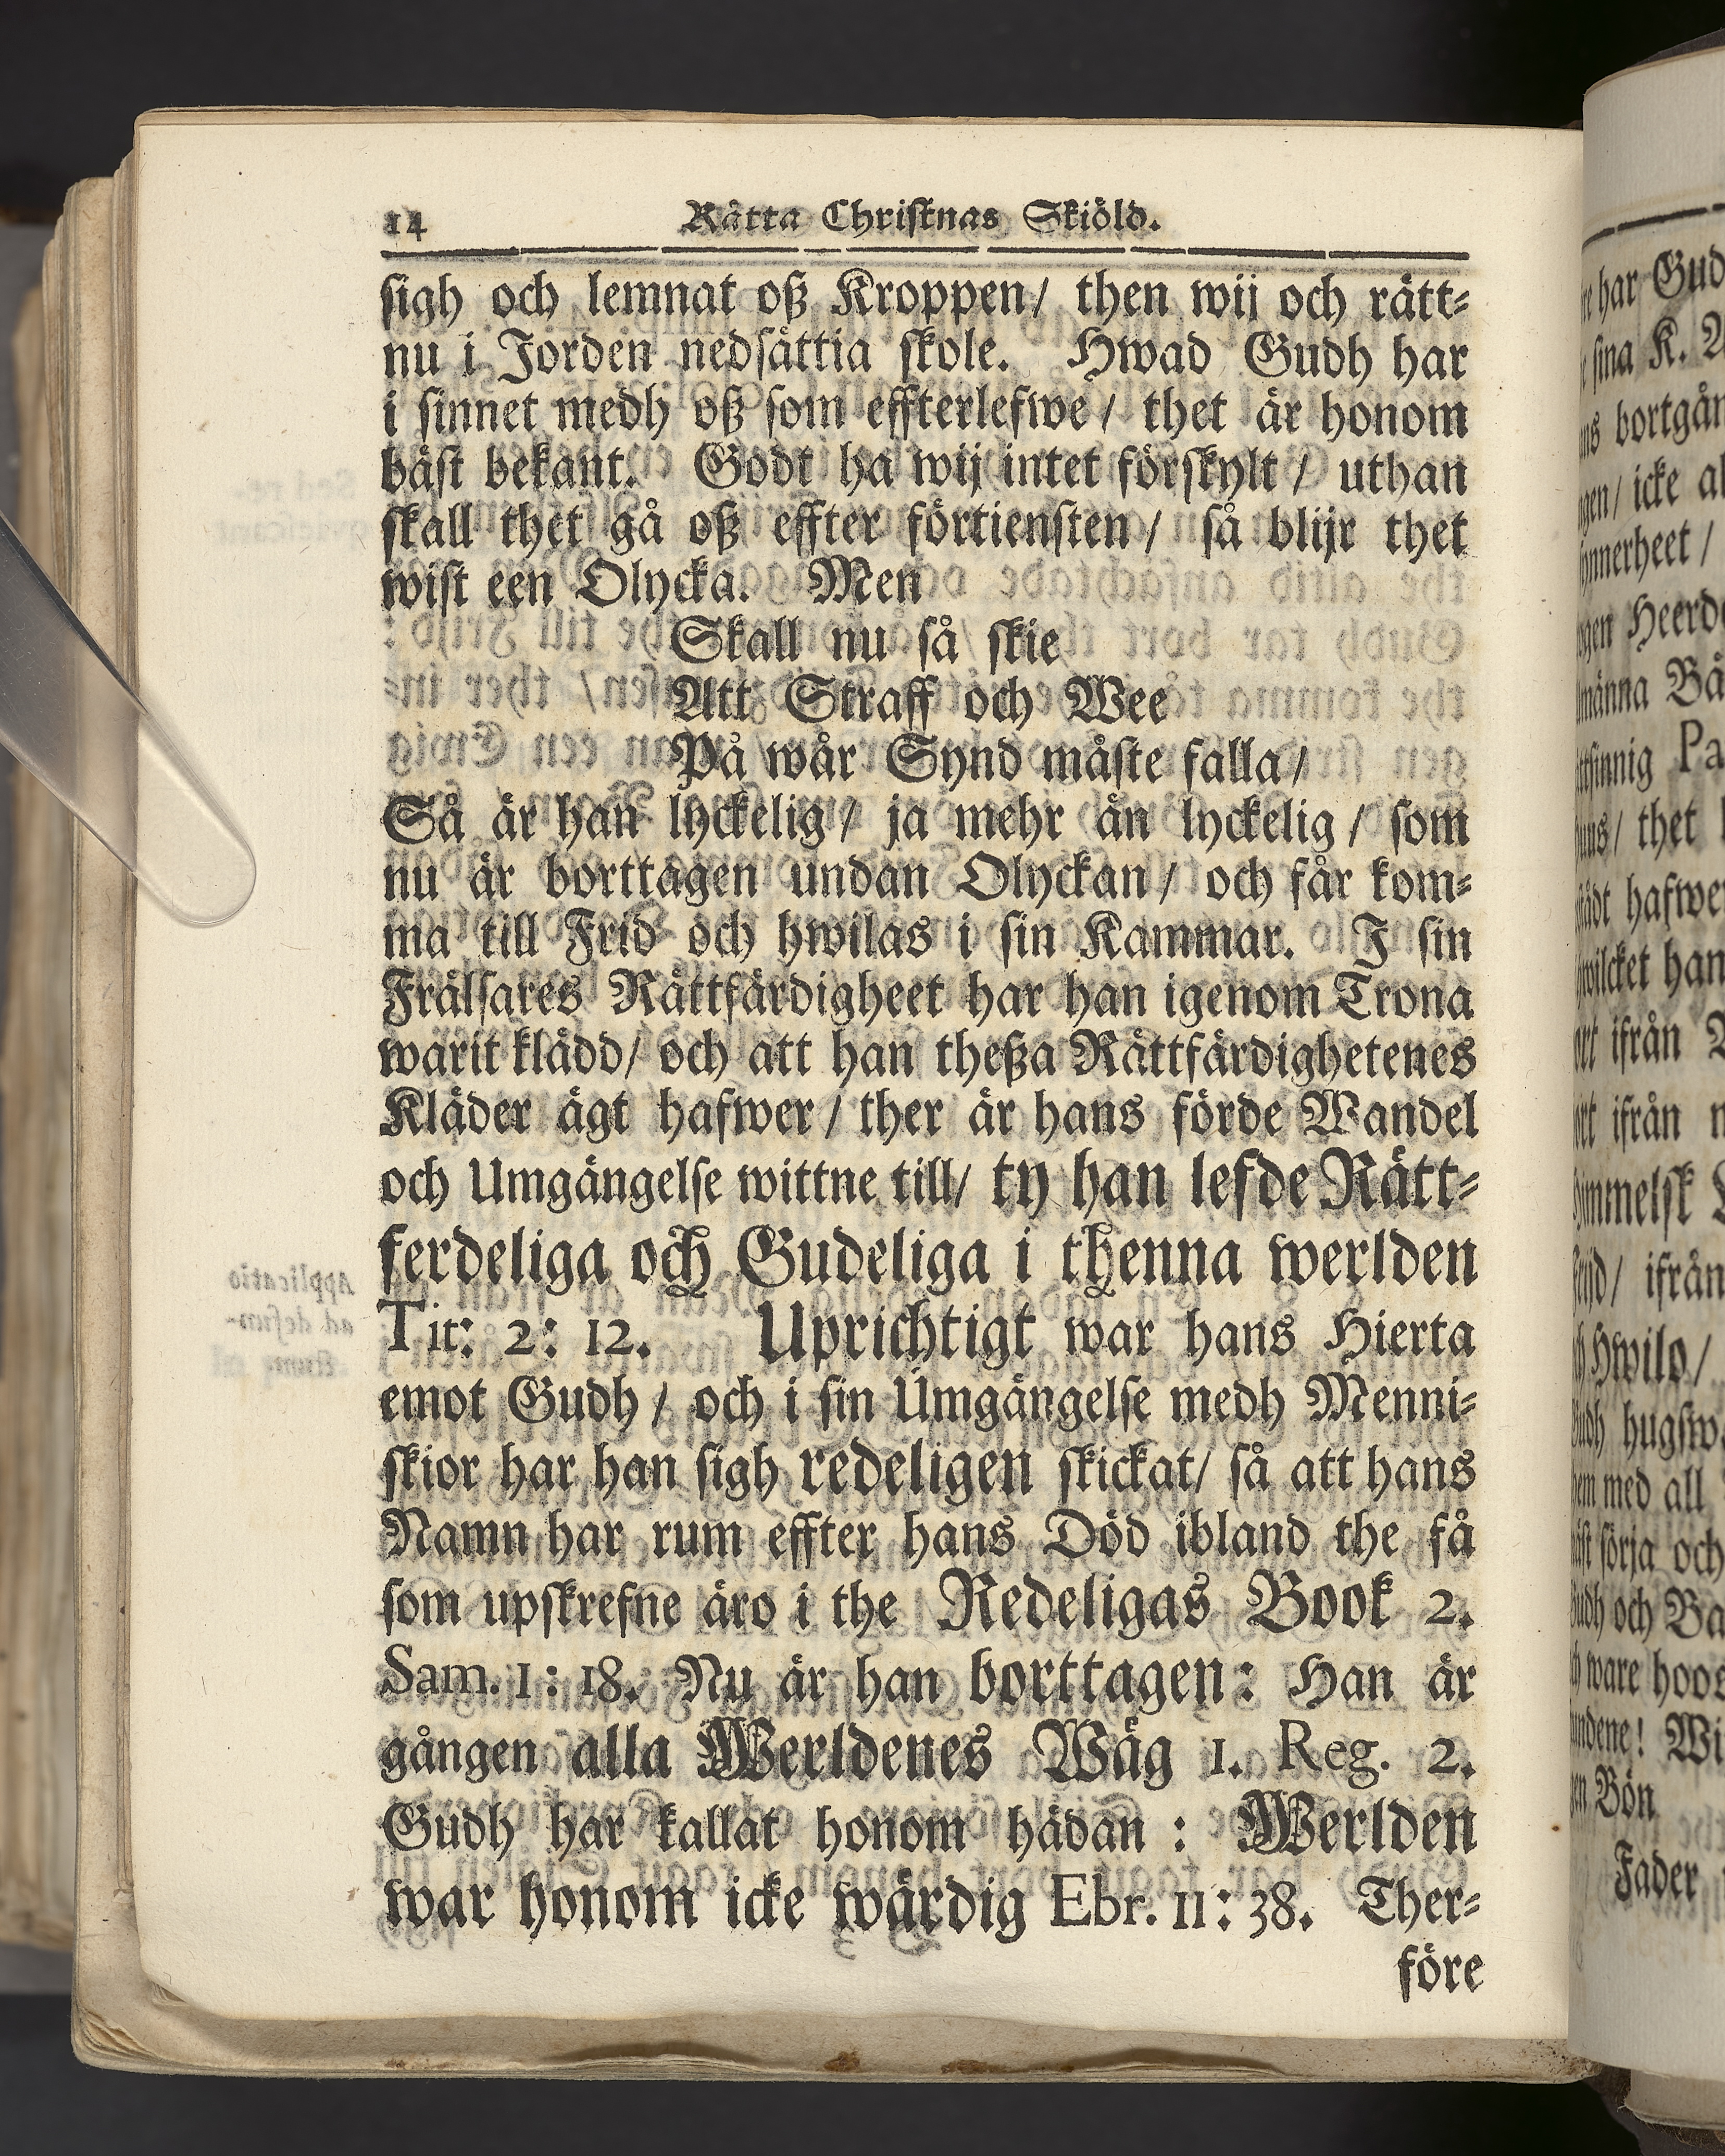 14 Rätta Christnas Skiöld.
sigh och lemnat oß Kroppen/ then wij och rätt-
nu i Jorden nedsättia skole. Hwad Gudh har
i sinnet medh oß som effterlefwe / thet är honom
bäst bekant. Godt ha wij intet förskylt / uthan
skall thet gå oß effter förtiensten / så blijr thet
wist een Olycka. Men
Skall nu så skie
Att Straff och Wee
På wår Synd måste falla /
Så är han lyckelig / ja mehr än lyckelig / som
nu är borttagen undan Olyckan / och får kom-
ma till Frid och hwilas i sin Kammar. I sin
Frälsares Rättfärdigheet har han igenom Trona
warit klädd/ och att han theßa Rättfärdighetenes
Kläder ägt hafwer / ther är hans förde Wandel
och Umgängelse wittne till/ ty han lefde Rätt-
ferdeliga och Gudeliga i thenna werlden
Tit: 2: 12. Uprichtigt war hans Hierta
emot Gudh / och i sin Umgängelse medh Menni-
skior har han sigh redeligen skickat/ så att hans
Namn har rum effter hans Död ibland the få
som upskrefne äro i the Redeligas Book 2.
Sam. 1: 18. Nu är han borttagen: Han är
gången alla Werldenes Wäg 1. Reg. 2.
Gudh har kallat honom hädan : Werlden
war honom icke wärdig Ebr. 11: 38. Ther-
före
har Gud
sina K. A
bortgån
icke al
Heerd
Pa
thet
hafwe
han
ifrån
ifrån
ifrån
Hwilo/
hugsw
med all
sörja och
och Ba
ware hoos
Wi
Bön
Fader